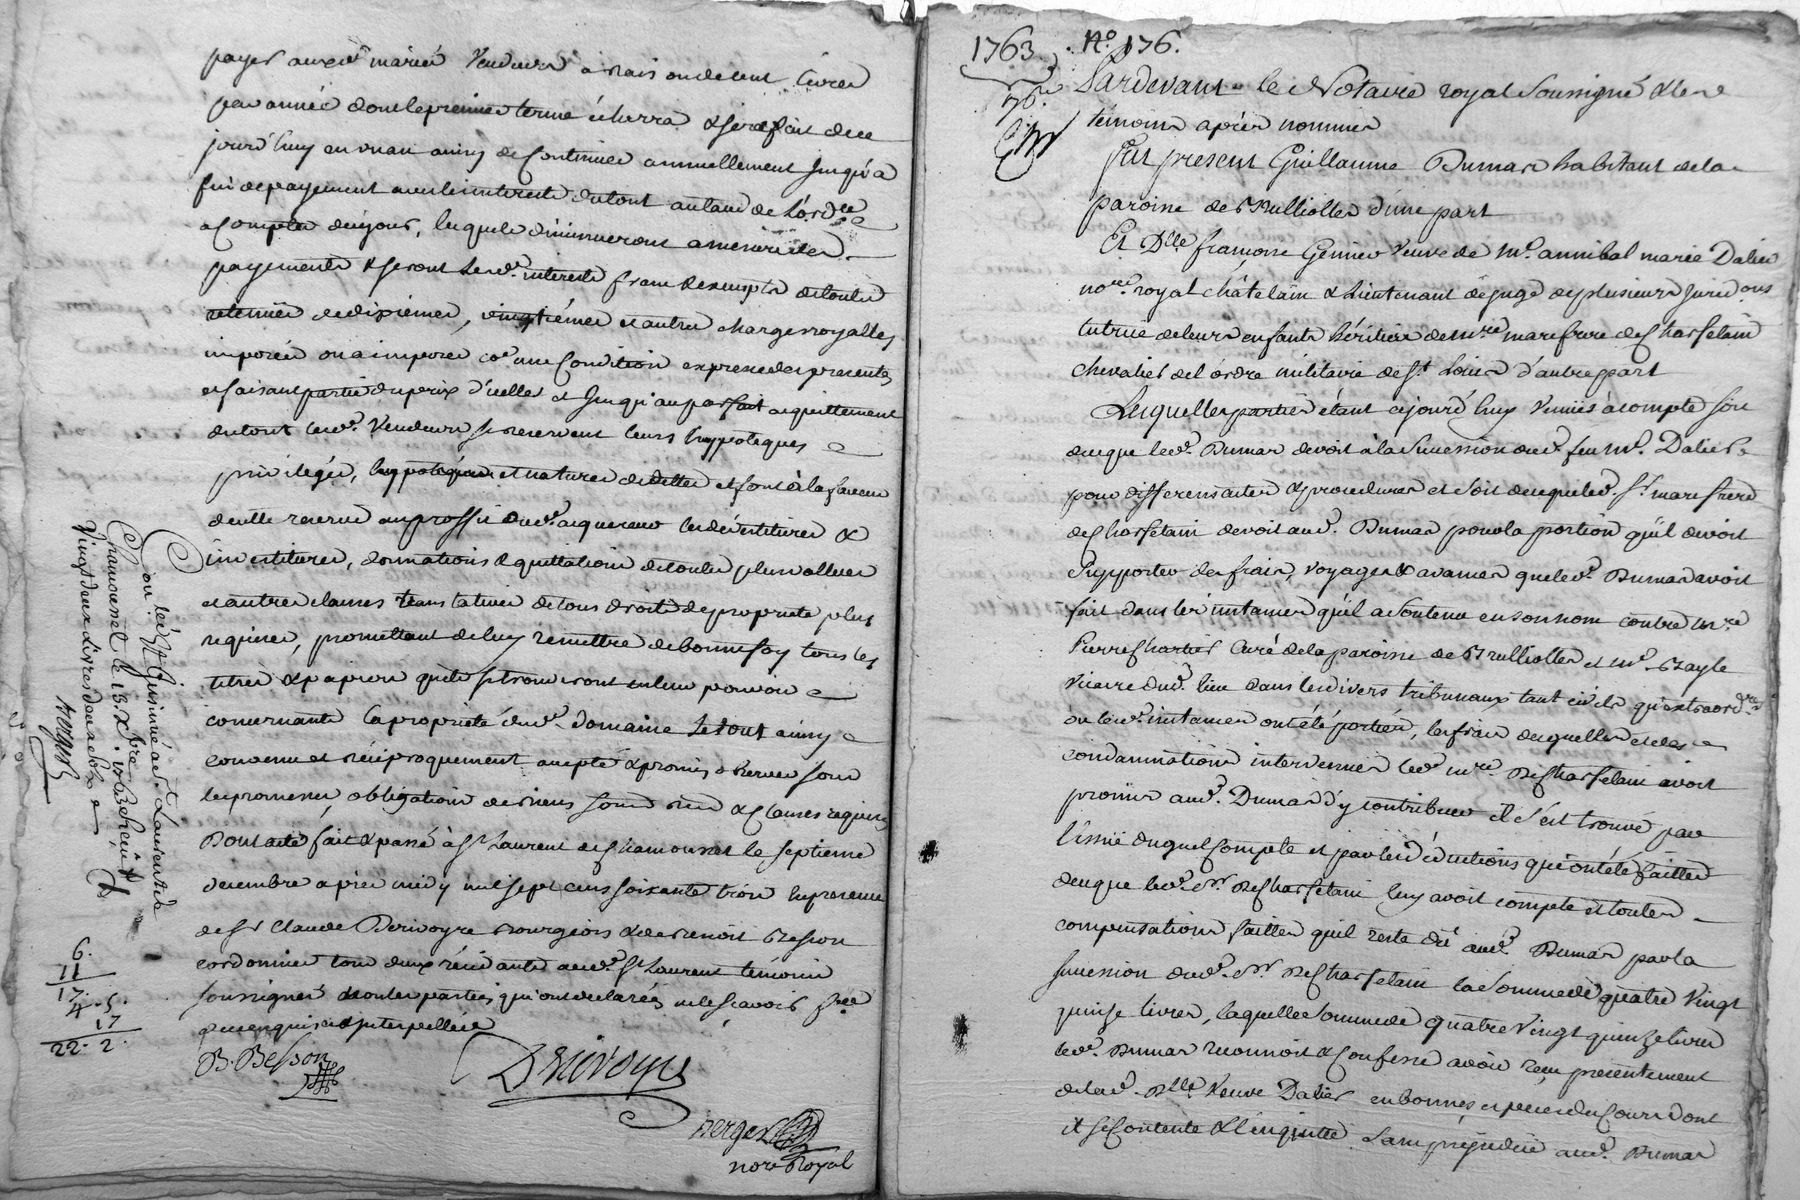 payer auxd. mariés Vendeurs à raison de cent livres
par année dont le premier terme écherra & sera fait de ce
jourd'huy en un an ainsy de Continuer annuellement Jusqu'à
fin de payement avec les interests du tout au taux de L'ordce
a Compter de ce jour, lesquels diminueront a mesure des
payements & seront Lesds. interests francs & exempts de toutes
retenües de dixiemes, vingtiémes et autres charges royalles
imposées ou a imposer co. une Condition expresse des presentes
et faisant partie du prix d'icelles et Jusqu'au parfait acquittement
du tout lesd. Vendeurs se reservent leurs hyppoteques
privileges, et natures de dettes et sont à la faveur
de cette reserve au proffit dud. acquereur les devestitures &
investitures, donnations & quittations de toutes plus vallues
et autres clauses translatives de tous droits de proprieté plus
requises, promettant de luy remettre de bonne foy tous les
titres & papiers qu'ils se trouveront en leur pouvoir
concernants la proprieté dud. domaine Le tout ainsy
convenu et réciproquement accepté & promis observer sous
les promesses obligations de biens soumd. rend. & Clauses requises
Dont acte fait & passé à St Laurent de Chamousset le septieme
decembre aprés midy mil sept cens soixante trois en presence
de Sr Claude Derivoyre bourgeois & de Benoit Besson
cordonnier tous deux résidants aud. St Laurent témoins
soussignés & non les parties qui ont declarés ne le sçavoir fre
de ce enquis et interpellées
B. Besson
Derivoyre
nore Royal
St Laurent de
Chamousset le 13. Xbre 1763. Reçu
Vingt deux Livres deux sols
6.
11
17.
4. 5.
17
22. 2.
1763. No. 176.
176.
Pardevant le Notaire royal Soussigné & les
témoins aprés nommés
Fut present Guillaume Dumas habitant de la
paroisse de Brulliolles d'une part
Et Dlle françoise Genner Veuve de Me. annibal marie Dalier
nore. royal châtelain & Lieutenant de juge de plusieurs Juridons
tutrice de leurs enfants héritiers de mre marefrere de Chasselain
chevalier de l'ordre militaire de St Loüis d'autre part
Lesquelles parties étant cejourd'huy Venües à compte soit
de ce que led. Dumas devoit à la Succession dud. feu Me. Dalier
pour differens actes & procedures et soit de ce que led. Sr. marefrere
de Chasselain devoit aud. Dumas pour la portion qu'il devoit
Supporter des frais, voyages & avances que led. Dumas avoit
fait dans les instances qu'il a Soutenu en son nom contre mre
Pierre Chartier Curé de la paroisse de Brulliolles et Mr. Bayle
Vicaire dud. lieu dans les divers tribunaux tant civils qu'extraordres
ou lesd. instances ont été portées, les frais desquelles et des
condamnations intervenües led. mre. De Chasselain avoit
promis aud. Dumas d'y contribuer il s'est trouvé par
l'issüe duquel Compte et par les déductions qui ont été faittes
de ce que led. Sr. De Chasselain luy avoit compté et toutes
compensations faittes qu'il reste dû aud. Dumas par la
succession dud. Sr De Chasselain la Somme de quatre Vingt
quinze livres, laquelle Somme de quatre Vingt quinze livres
led. Dumas reconnoit & Confesse avoir reçu presentement
de lad. Dlle Veuve Dalier en bonnes especes de Cours dont
il se Contente & l'en quitte Sans préjudice aud. Dumas